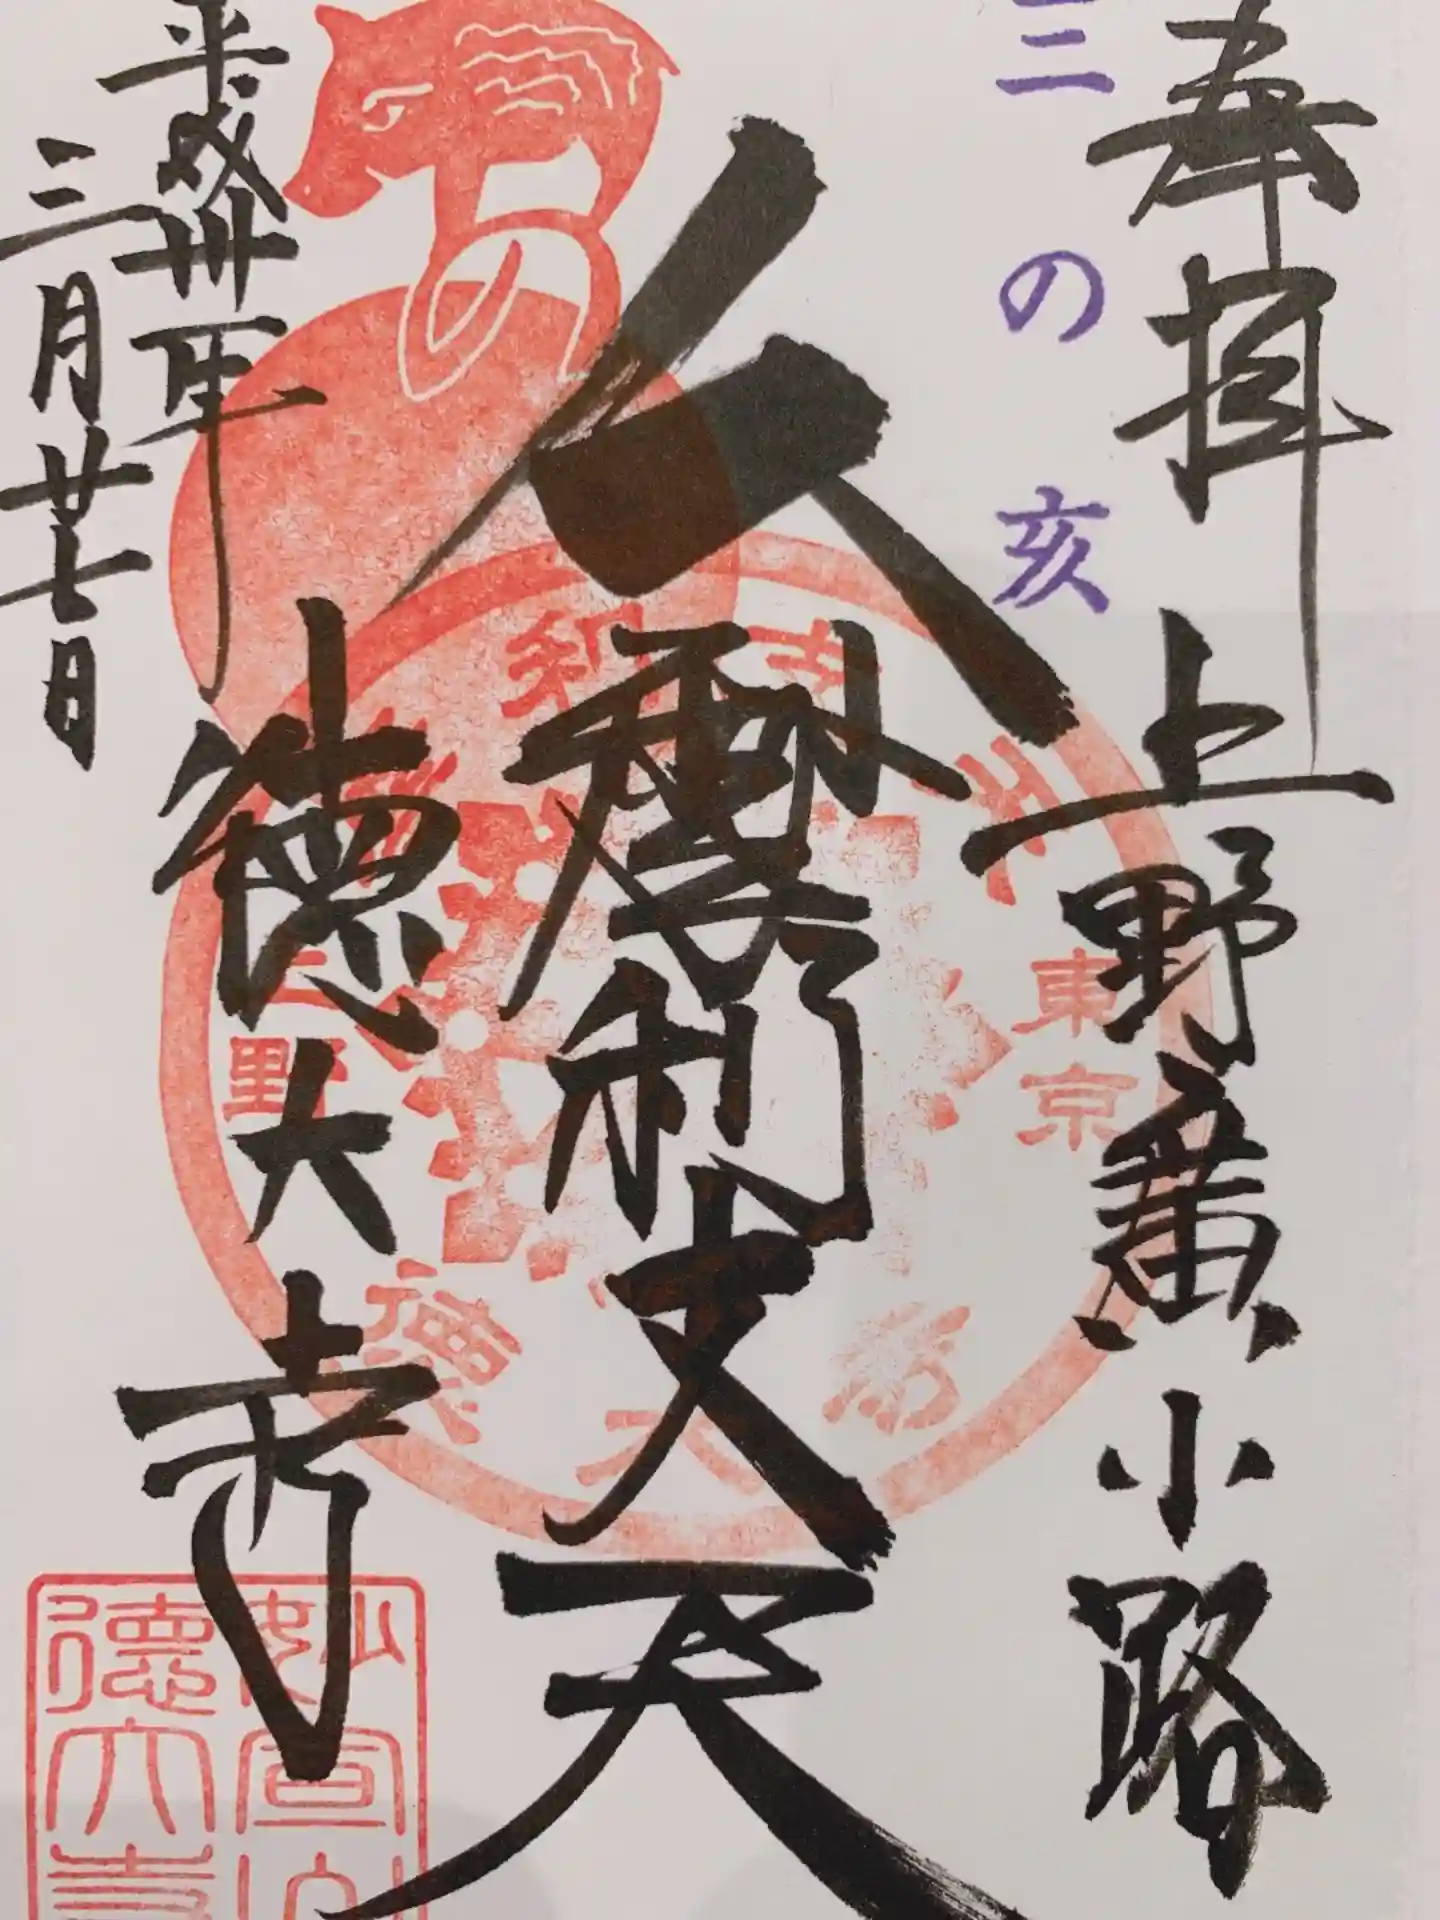 奉拝 上野廣小路
三の亥
摩利支天
徳大寺
平成卅一年
三月廿七日
東京
上野
徳大寺
妙宣山
徳大寺